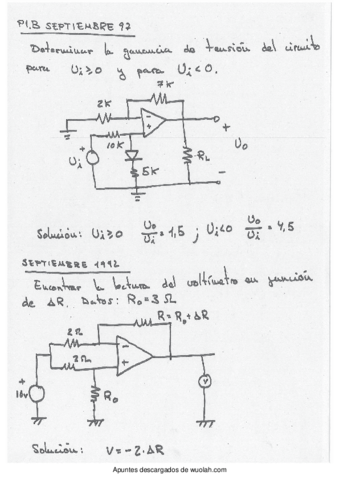 P1.B SEPTIEMBRE 92
Determinar la ganancia de tensión del circuito
para Ui≥0 y para Ui<0.
7K
2K
-
+
10K
+
Ui
5K
RL
+
Uo
-
Solución: Ui≥0 Uo/Ui = 1,5 ; Ui<0 Uo/Ui = 4,5
SEPTIEMBRE 1992
Encontrar la lectura del voltímetro en función
de ΔR. Datos: Ro=3 Ω
R=Ro+ΔR
2Ω
2Ω
-
+
+
10v
Ro
V
Solución: V=-2·ΔR
Apuntes descargados de wuolah.com